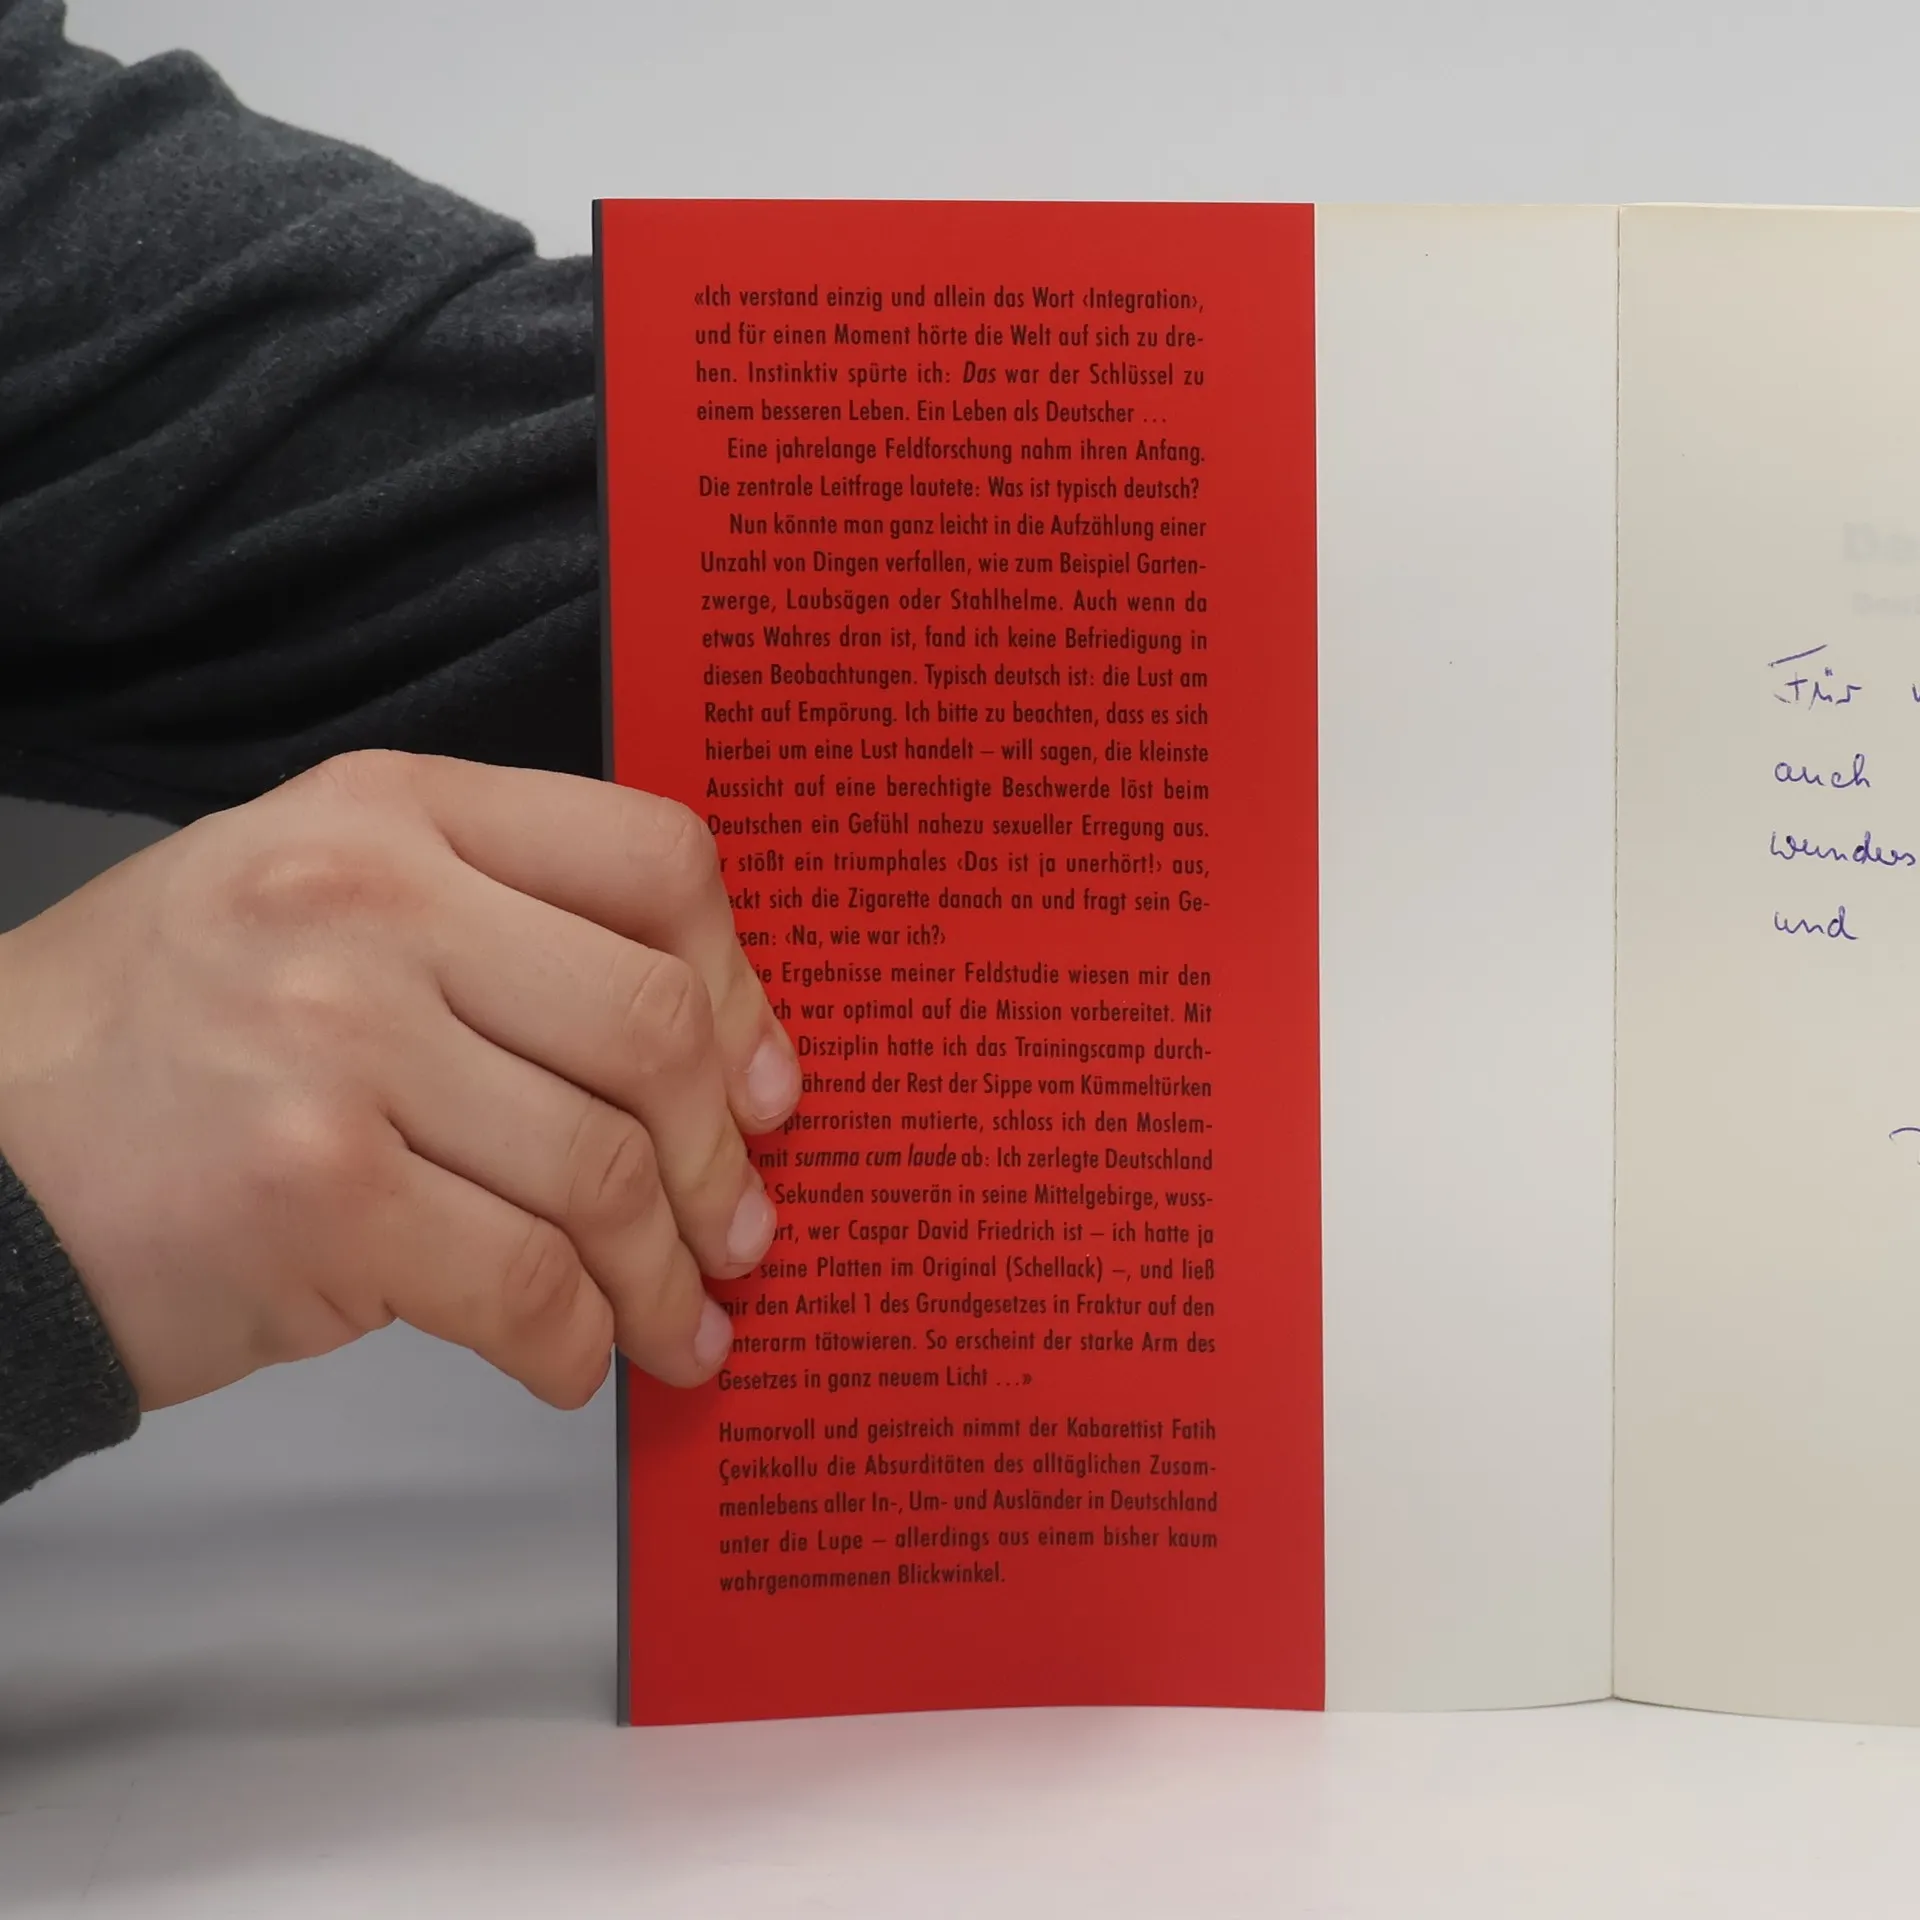 «Ich verstand einzig und allein das Wort ‹Integration›,
und für einen Moment hörte die Welt auf sich zu dre-
hen. Instinktiv spürte ich: Das war der Schlüssel zu
einem besseren Leben. Ein Leben als Deutscher ...
Eine jahrelange Feldforschung nahm ihren Anfang.
Die zentrale Leitfrage lautete: Was ist typisch deutsch?
Nun könnte man ganz leicht in die Aufzählung einer
Unzahl von Dingen verfallen, wie zum Beispiel Garten-
zwerge, Laubsägen oder Stahlhelme. Auch wenn da
etwas Wahres dran ist, fand ich keine Befriedigung in
diesen Beobachtungen. Typisch deutsch ist: die Lust am
Recht auf Empörung. Ich bitte zu beachten, dass es sich
hierbei um eine Lust handelt – will sagen, die kleinste
Aussicht auf eine berechtigte Beschwerde löst beim
Deutschen ein Gefühl nahezu sexueller Erregung aus.
stößt ein triumphales ‹Das ist ja unerhört!› aus,
sich die Zigarette danach an und fragt sein Ge-
‹Na, wie war ich?›
Ergebnisse meiner Feldstudie wiesen mir den
war optimal auf die Mission vorbereitet. Mit
Disziplin hatte ich das Trainingscamp durch-
der Rest der Sippe vom Kümmeltürken
mutierte, schloss ich den Moslem-
mit summa cum laude ab: Ich zerlegte Deutschland
Sekunden souverän in seine Mittelgebirge, wuss-
wer Caspar David Friedrich ist – ich hatte ja
seine Platten im Original (Schellack) –, und ließ
mir den Artikel 1 des Grundgesetzes in Fraktur auf den
tätowieren. So erscheint der starke Arm des
Gesetzes in ganz neuem Licht ...»
Humorvoll und geistreich nimmt der Kabarettist Fatih
Çevikkollu die Absurditäten des alltäglichen Zusam-
menlebens aller In-, Um- und Ausländer in Deutschland
unter die Lupe – allerdings aus einem bisher kaum
wahrgenommenen Blickwinkel.
Für
auch
und